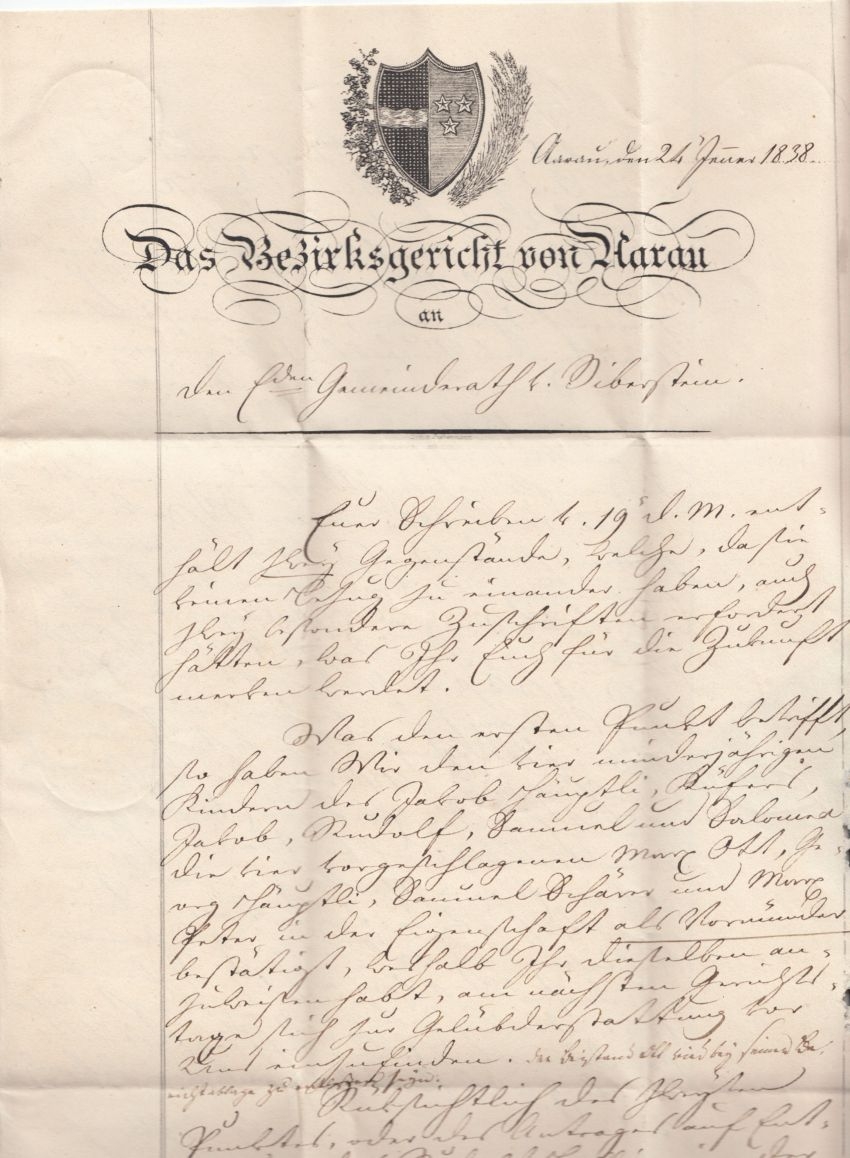 Aarau, den 24 Jenner 1838.
Das Bezirksgericht von Aarau
an
den Eden Gemeinderath v. Biberstein.
Euer Schreiben v. 19 d. M. ent-
hält zwey Gegenstände, welche, da sie
keinen Bezug zu einander haben, auch
zwey besondere Zuschriften erfordert
hätten, was Ihr Euch für die Zukunft
merken werdet.
Was den ersten Punkt betrifft,
so haben Wir den vier minderjährigen
Kindern des Jakob Häuptli, Küfers,
Jakob, Rudolf, Samuel und Salomea
die vier vorgeschlagenen Marx Ott, Ge-
org Häuptli, Samuel Schärer und Marx
Peter in der Eigenschaft als Vormünder
bestätigt, weshalb Ihr dieselben an-
zuweisen habt, am nächsten Gerichts-
tage sich zur Gelübderstattung vor
Uns einzufinden. der Beystand
zu
Rücksichtlich des zweyten
Punktes, oder des Antrages auf Ent-